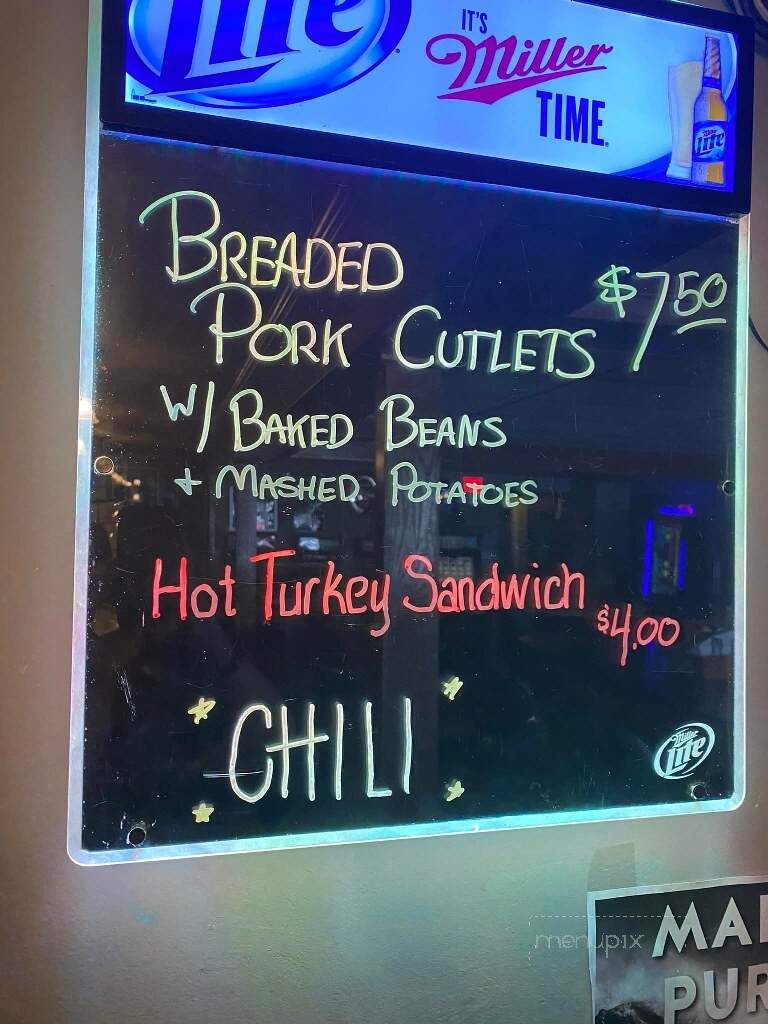 Lite
IT'S
Miller
TIME.
Lite
BREADED
PORK CUTLETS $7.50
W/ BAKED BEANS
+ MASHED POTATOES
Hot Turkey Sandwich $4.00
CHILI
Miller
Lite
menupix
MAI
PUR